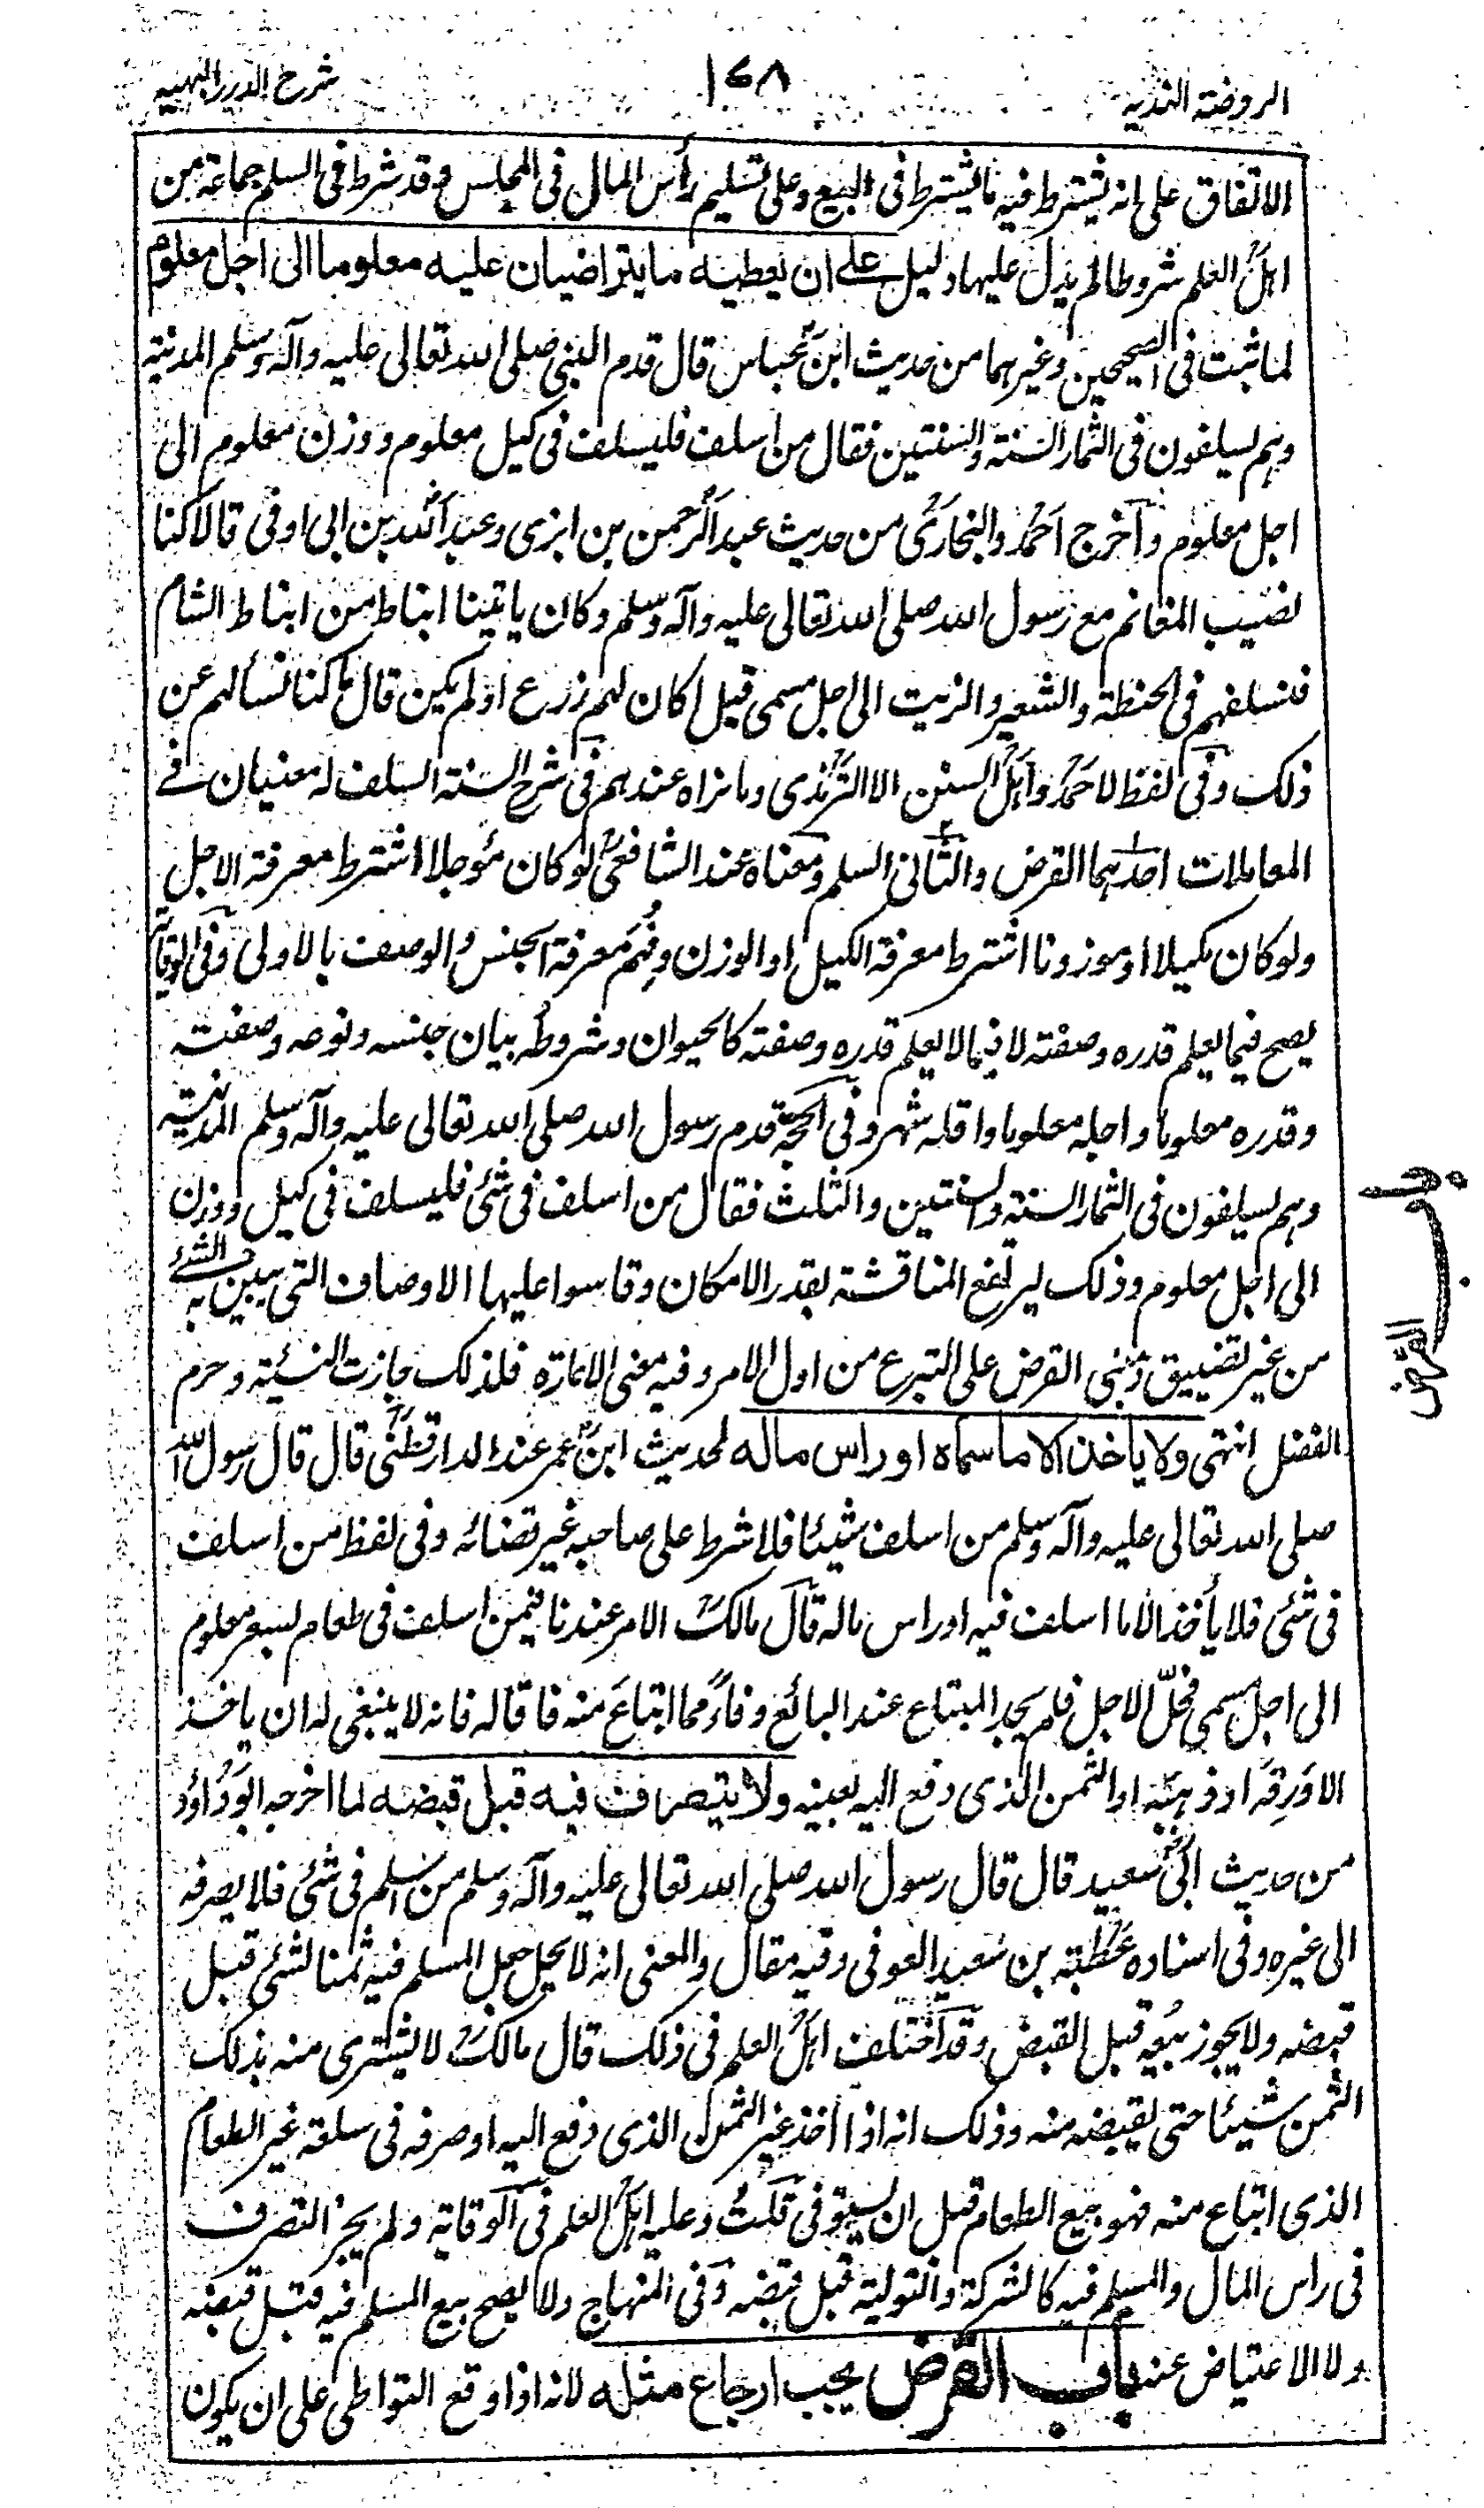 الروضة الندية
١٤٨
شرح الدرر البهية
الاتفاق على انه يشترط فيه ما يشترط فى البيع وعلى تسليم رأس المال فى المجلس وقد شرط فى السلم جماعة من
اهل العلم شروطا لم يدل عليها دليل على ان يعطيه ما يتراضيان عليه معلوما الى اجل معلوم
لما ثبت فى الصحيحين وغيرهما من حديث ابن عباس قال قدم النبى صلى الله تعالى عليه وآله وسلم المدينة
وهم يسلفون فى الثمار السنة والسنتين فقال من اسلف فليسلف فى كيل معلوم ووزن معلوم الى
اجل معلوم وأخرج احمد والبخارى من حديث عبد الرحمن بن ابزى وعبد الله بن ابى اوفى قالا كنا
نصيب المغانم مع رسول الله صلى الله تعالى عليه وآله وسلم وكان ياتينا انباط من انباط الشام
فنسلفهم فى الحنطة والشعير والزيت الى اجل مسمى قيل اكان لهم زرع او لم يكن قال ما كنا نسألهم عن
ذلك وفى لفظ لاحمد وأهل السنن الا الترمذى وما نراه عندهم فى شرح السنة السلف له معنيان فے
المعاملات احدهما القرض والثانى السلم ومعناه عند الشافعى لو كان مؤجلا اشترط معرفة الاجل
ولو كان مكيلا او موزونا اشترط معرفة الكيل او الوزن وفهم معرفة الجنس والوصف بالاولى وفى الوقاية
يصح فيما يعلم قدره وصفته لا فيما لا يعلم قدره وصفته كالحيوان وشروطه بيان جنسه ونوعه وصفته
وقدره معلوما واجله معلوما واقله شهر وفى الحجة قدم رسول الله صلى الله تعالى عليه وآله وسلم المدينة
وهم يسلفون فى الثمار السنة والسنتين والثلث فقال من اسلف فى شئ فليسلف فى كيل ووزن
الى اجل معلوم وذلك ليرتفع المناقشة بقدر الامكان وقاسوا عليها الاوصاف التى يبين به الشئ
من غير تضييق ومبنى القرض على التبرع من اول الامر وفيه معنى الاعارة فلذلك جازت النسئية وحرم
الفضل انتهى ولا ياخذ الا ما سماه او راس ماله لحديث ابن عمر عند الدارقطنى قال قال رسول الله
صلى الله تعالى عليه وآله وسلم من اسلف شيئا فلا شرط على صاحبه غير قضائه وفى لفظ من اسلف
فى شئ فلا يأخذ الا ما اسلف فيه او راس ماله قال مالك الامر عندنا فيمن اسلف فى طعام بسعر معلوم
الى اجل مسمى فحلّ الاجل فلم يجد المبتاع عند البائع وفاءً مما ابتاع منه فاقاله فانه لا ينبغى له ان ياخذ
الا ورقه او ذهبه او الثمن الذى دفع اليه بعينه ولا يتصرف فيه قبل قبضه لما اخرجه ابو داؤد
من حديث ابى سعيد قال قال رسول الله صلى الله تعالى عليه وآله وسلم من اسلم فى شئ فلا يصرفه
الى غيره وفى اسناده عطية بن سعيد العوفى وفيه مقال والمعنى انه لا يحل جعل المسلم فيه ثمنا لشئ قبل
قبضه ولا يجوز بيعه قبل القبض وقد اختلف اهل العلم فى ذلك قال مالك لا يشترى منه بذلك
الثمن شيئا حتى يقبضه منه وذلك انه اذا اخذ غير الثمن الذى دفع اليه او صرفه فى سلعة غير الطعام
الذى ابتاع منه فهو بيع الطعام قبل ان يستوفى قلت وعليه اهل العلم فى الوقاية ولم يجز التصرف
فى راس المال والمسلم فيه كالشركة والتولية قبل قبضه وفى المنهاج ولا يصح بيع المسلم فيه قبل قبضه
ولا الاعتياض عنه باب القرض يجب ارجاع مثله لانه اذا وقع التواطى على ان يكون
القرض